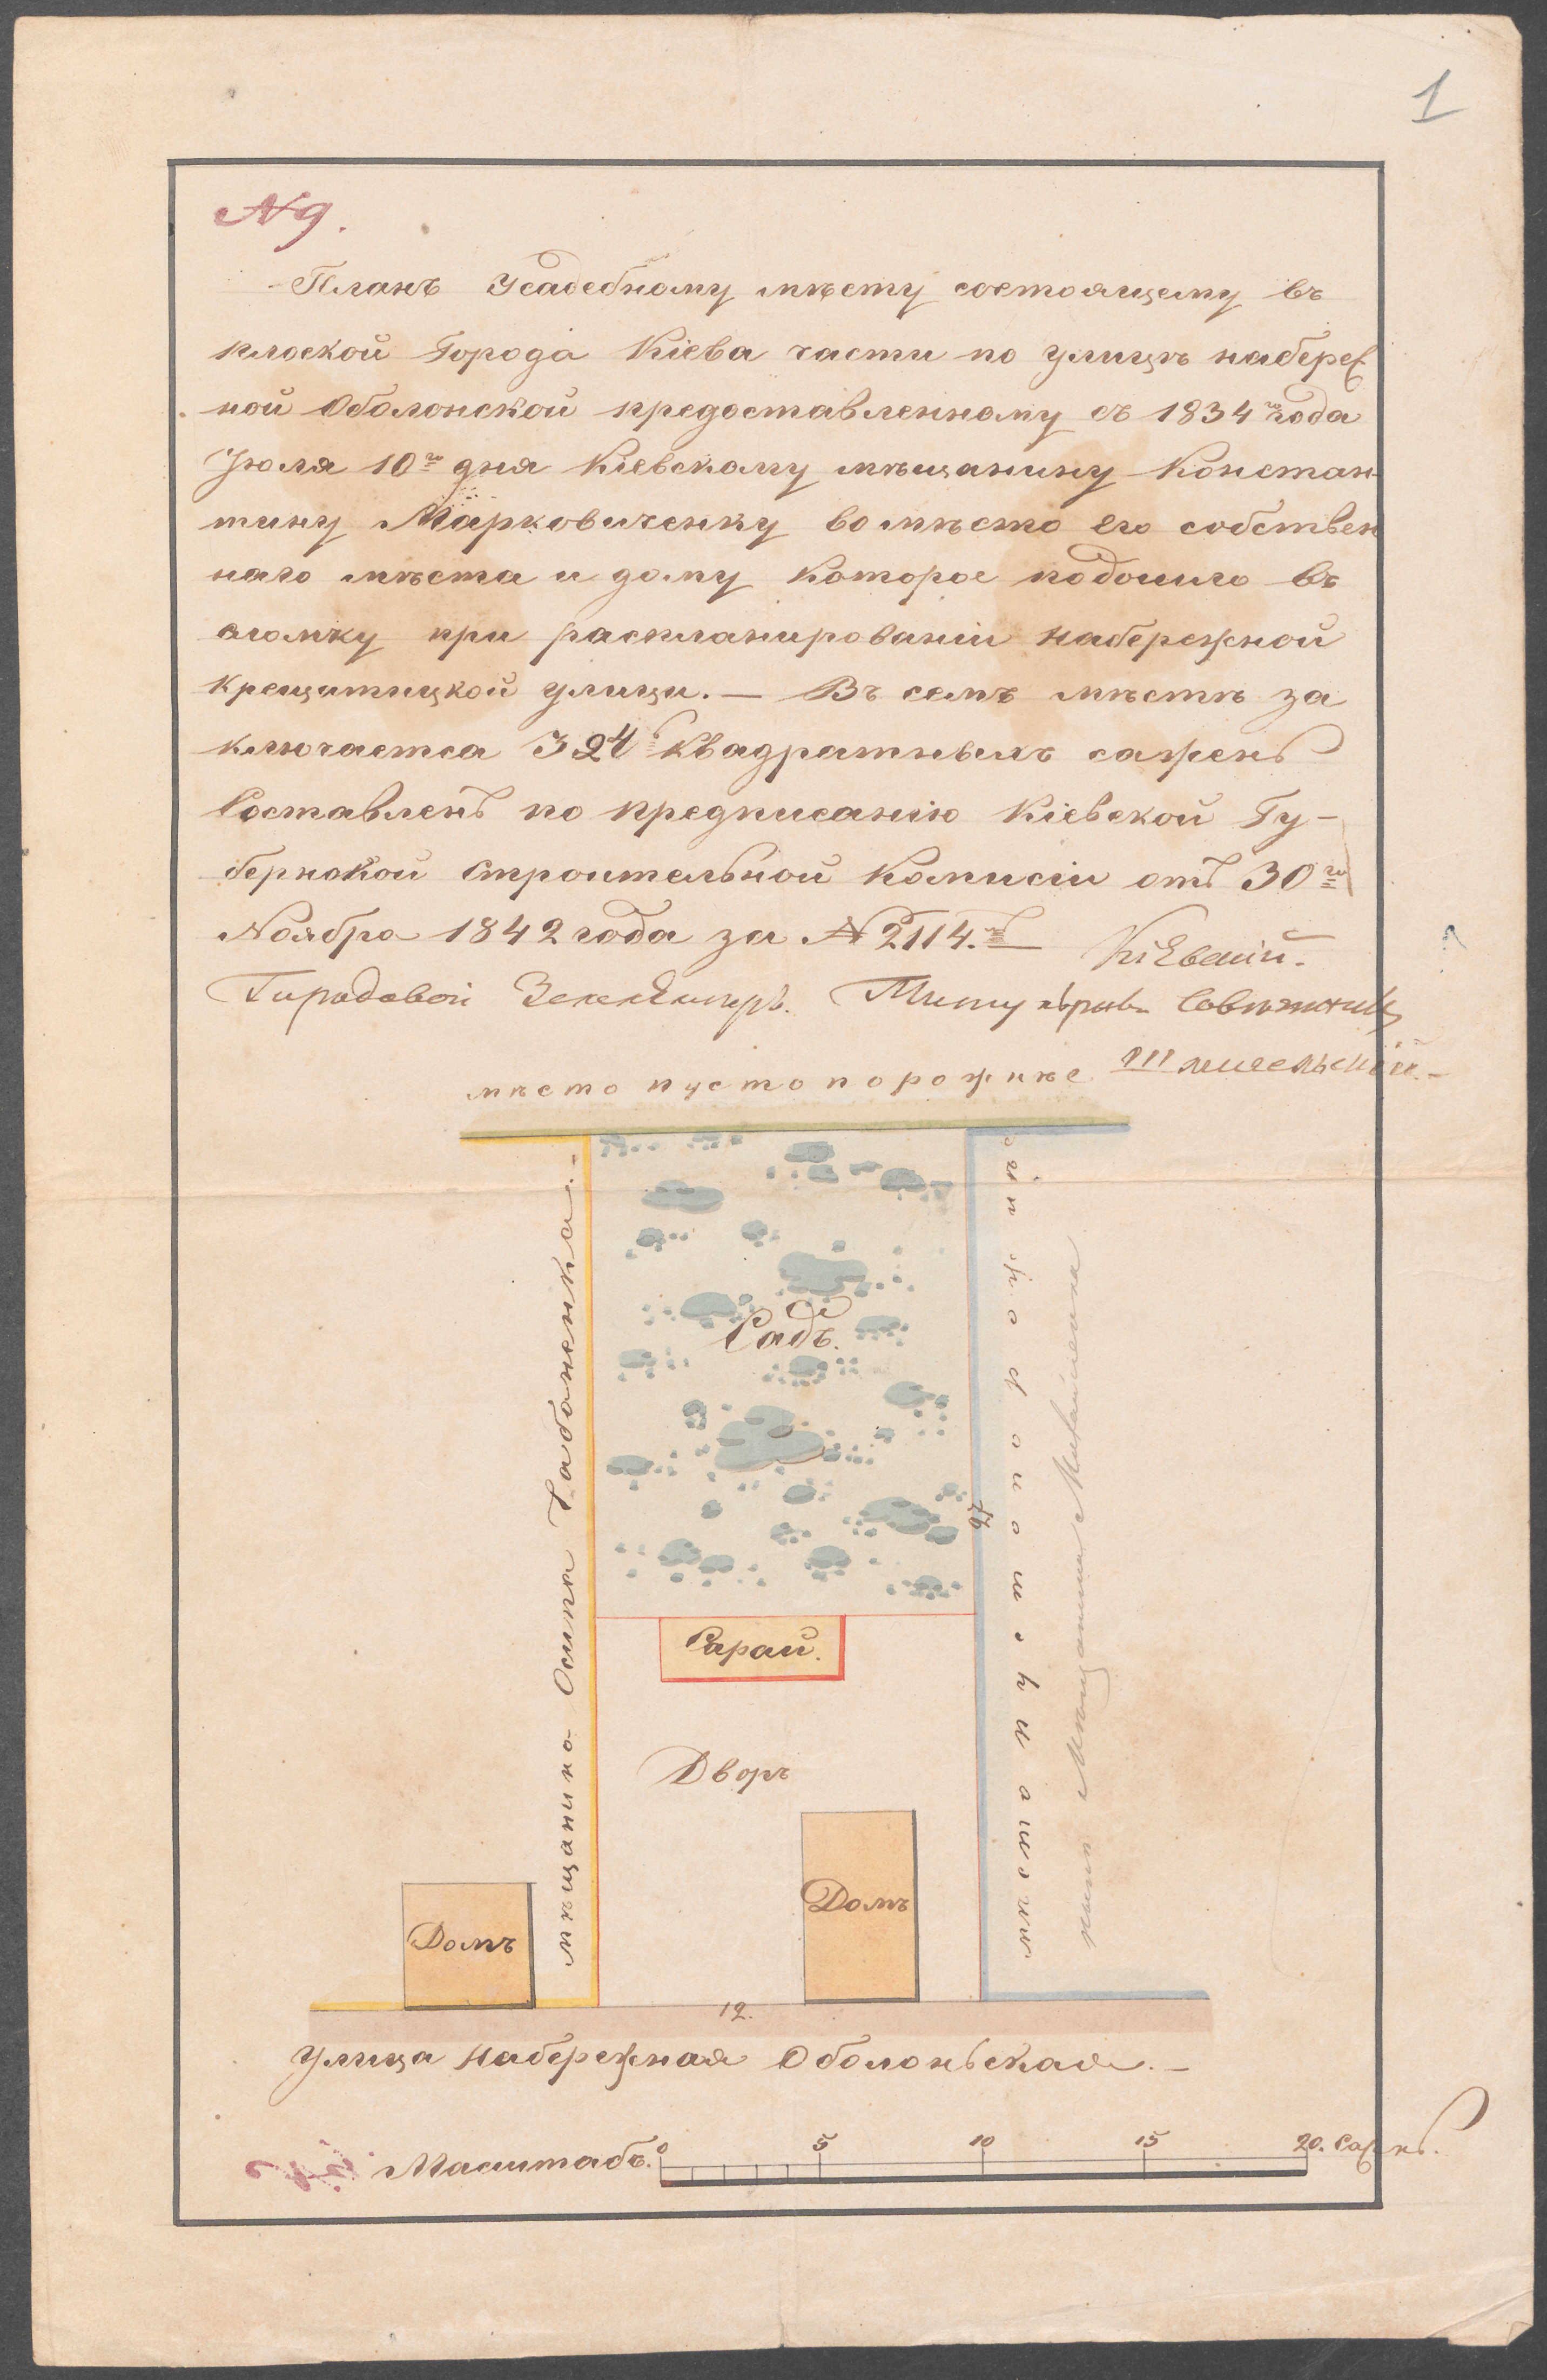 1
№ 9.
Планъ Усадебному мѣсту состоящему въ
плоской Города Кіева части по улицѣ набереж
ной Оболонской предоставленному съ 1834го года
Іюля 10го дня Кіевскому мѣщанину Констан-
тину Марковиченку вомѣсто его собствен
наго мѣста и дому которое подошло въ
при распланированіи набережной
крещатицкой улицы. — Въ семъ мѣстѣ за
ключается 324 квадратныхъ сажень
Составленъ по предписанію Кіевской Гу-
бернской Строительной Комисіи отъ 30го
Ноября 1842 года за № 2114.мъ Кіевскій
Городовой Землемѣръ. Титулярный Совѣтникъ
мѣсто пусто порожнѣе
мѣщанина Осипа
Садъ.
27
Сарай.
Дворъ
Домъ
Домъ
мѣсто
мѣщанина
12.
Улица Набережная Оболоньская. —
Масштабъ. 0 5 10 15 20. Сажнъ.